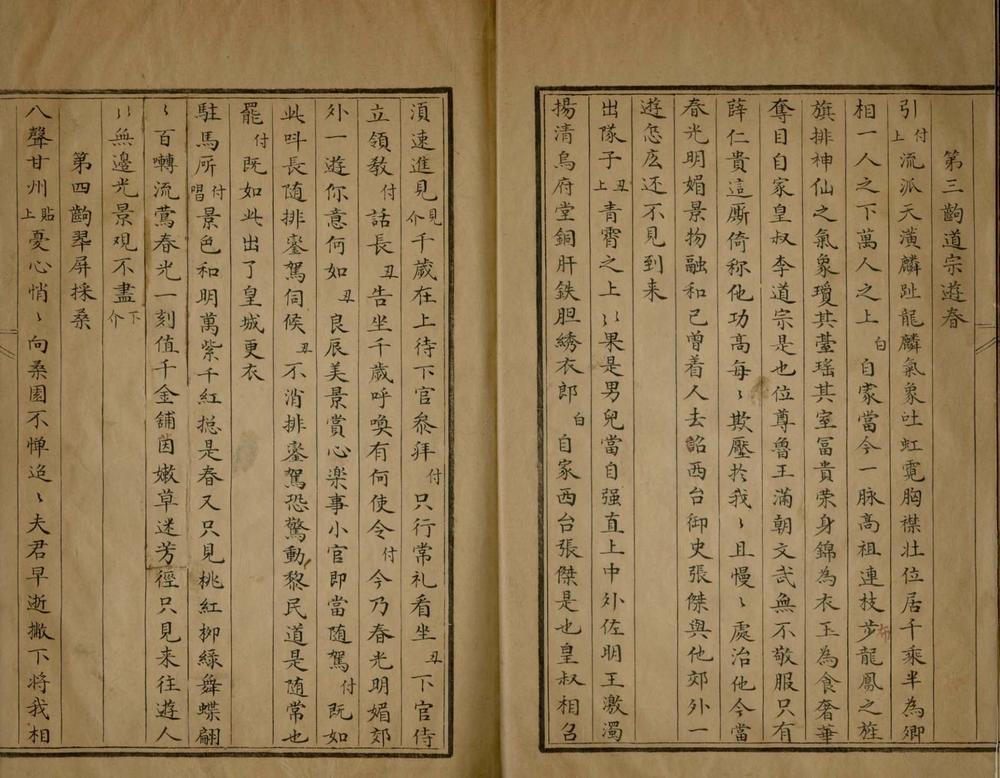 第三齣道宗遊春
引付上流派天潢麟趾龍麟氣象吐虹霓胸襟壮位居千乘半為卿
相一人之下萬人之上白自家當今一脉高祖連枝步龍鳳之旌
旗排神仙之氣象瓊其臺瑤其室冨貴荣身錦為衣玉為食奢華
奪目自家皇叔李道宗是也位尊魯王滿朝文武無不敬服只有
薛仁貴這厮倚称他功高每〻欺壓扵我〻且慢〻處治他今當
春光明媚景物融和已曾着人去詔西台御史張傑與他郊外一
遊怎広还不見到来
出隊子丑上青霄之上〻果是男兒當自强直上中外佐明王激濁
揚清烏府堂銅肝鉄胆綉衣郎白自家西台張傑是也皇叔相召
湏速進見見介千歲在上待下官叅拜付只行常礼看坐丑下官侍
立領教付話長丑告坐千歲呼喚有何使令付今乃春光明媚郊
外一遊你意何如丑良辰美景賞心楽事小官即當随駕付既如
此呌長随排鑾駕伺候丑不消排鑾駕恐驚動黎民道是随常也
罷付既如此出了皇城更衣
駐馬所付唱景色和明萬紫千紅揔是春又只見桃紅柳綠舞蝶翩
〻百囀流鶯春光一刻值千金舖茵嫩草迷芳徑只見来往遊人
〻無邊光景观不盡下介
第四齣翠屏採桑
八聲甘州貼上憂心悄〻向桑園不惮迢〻夫君早逝撇下将我相